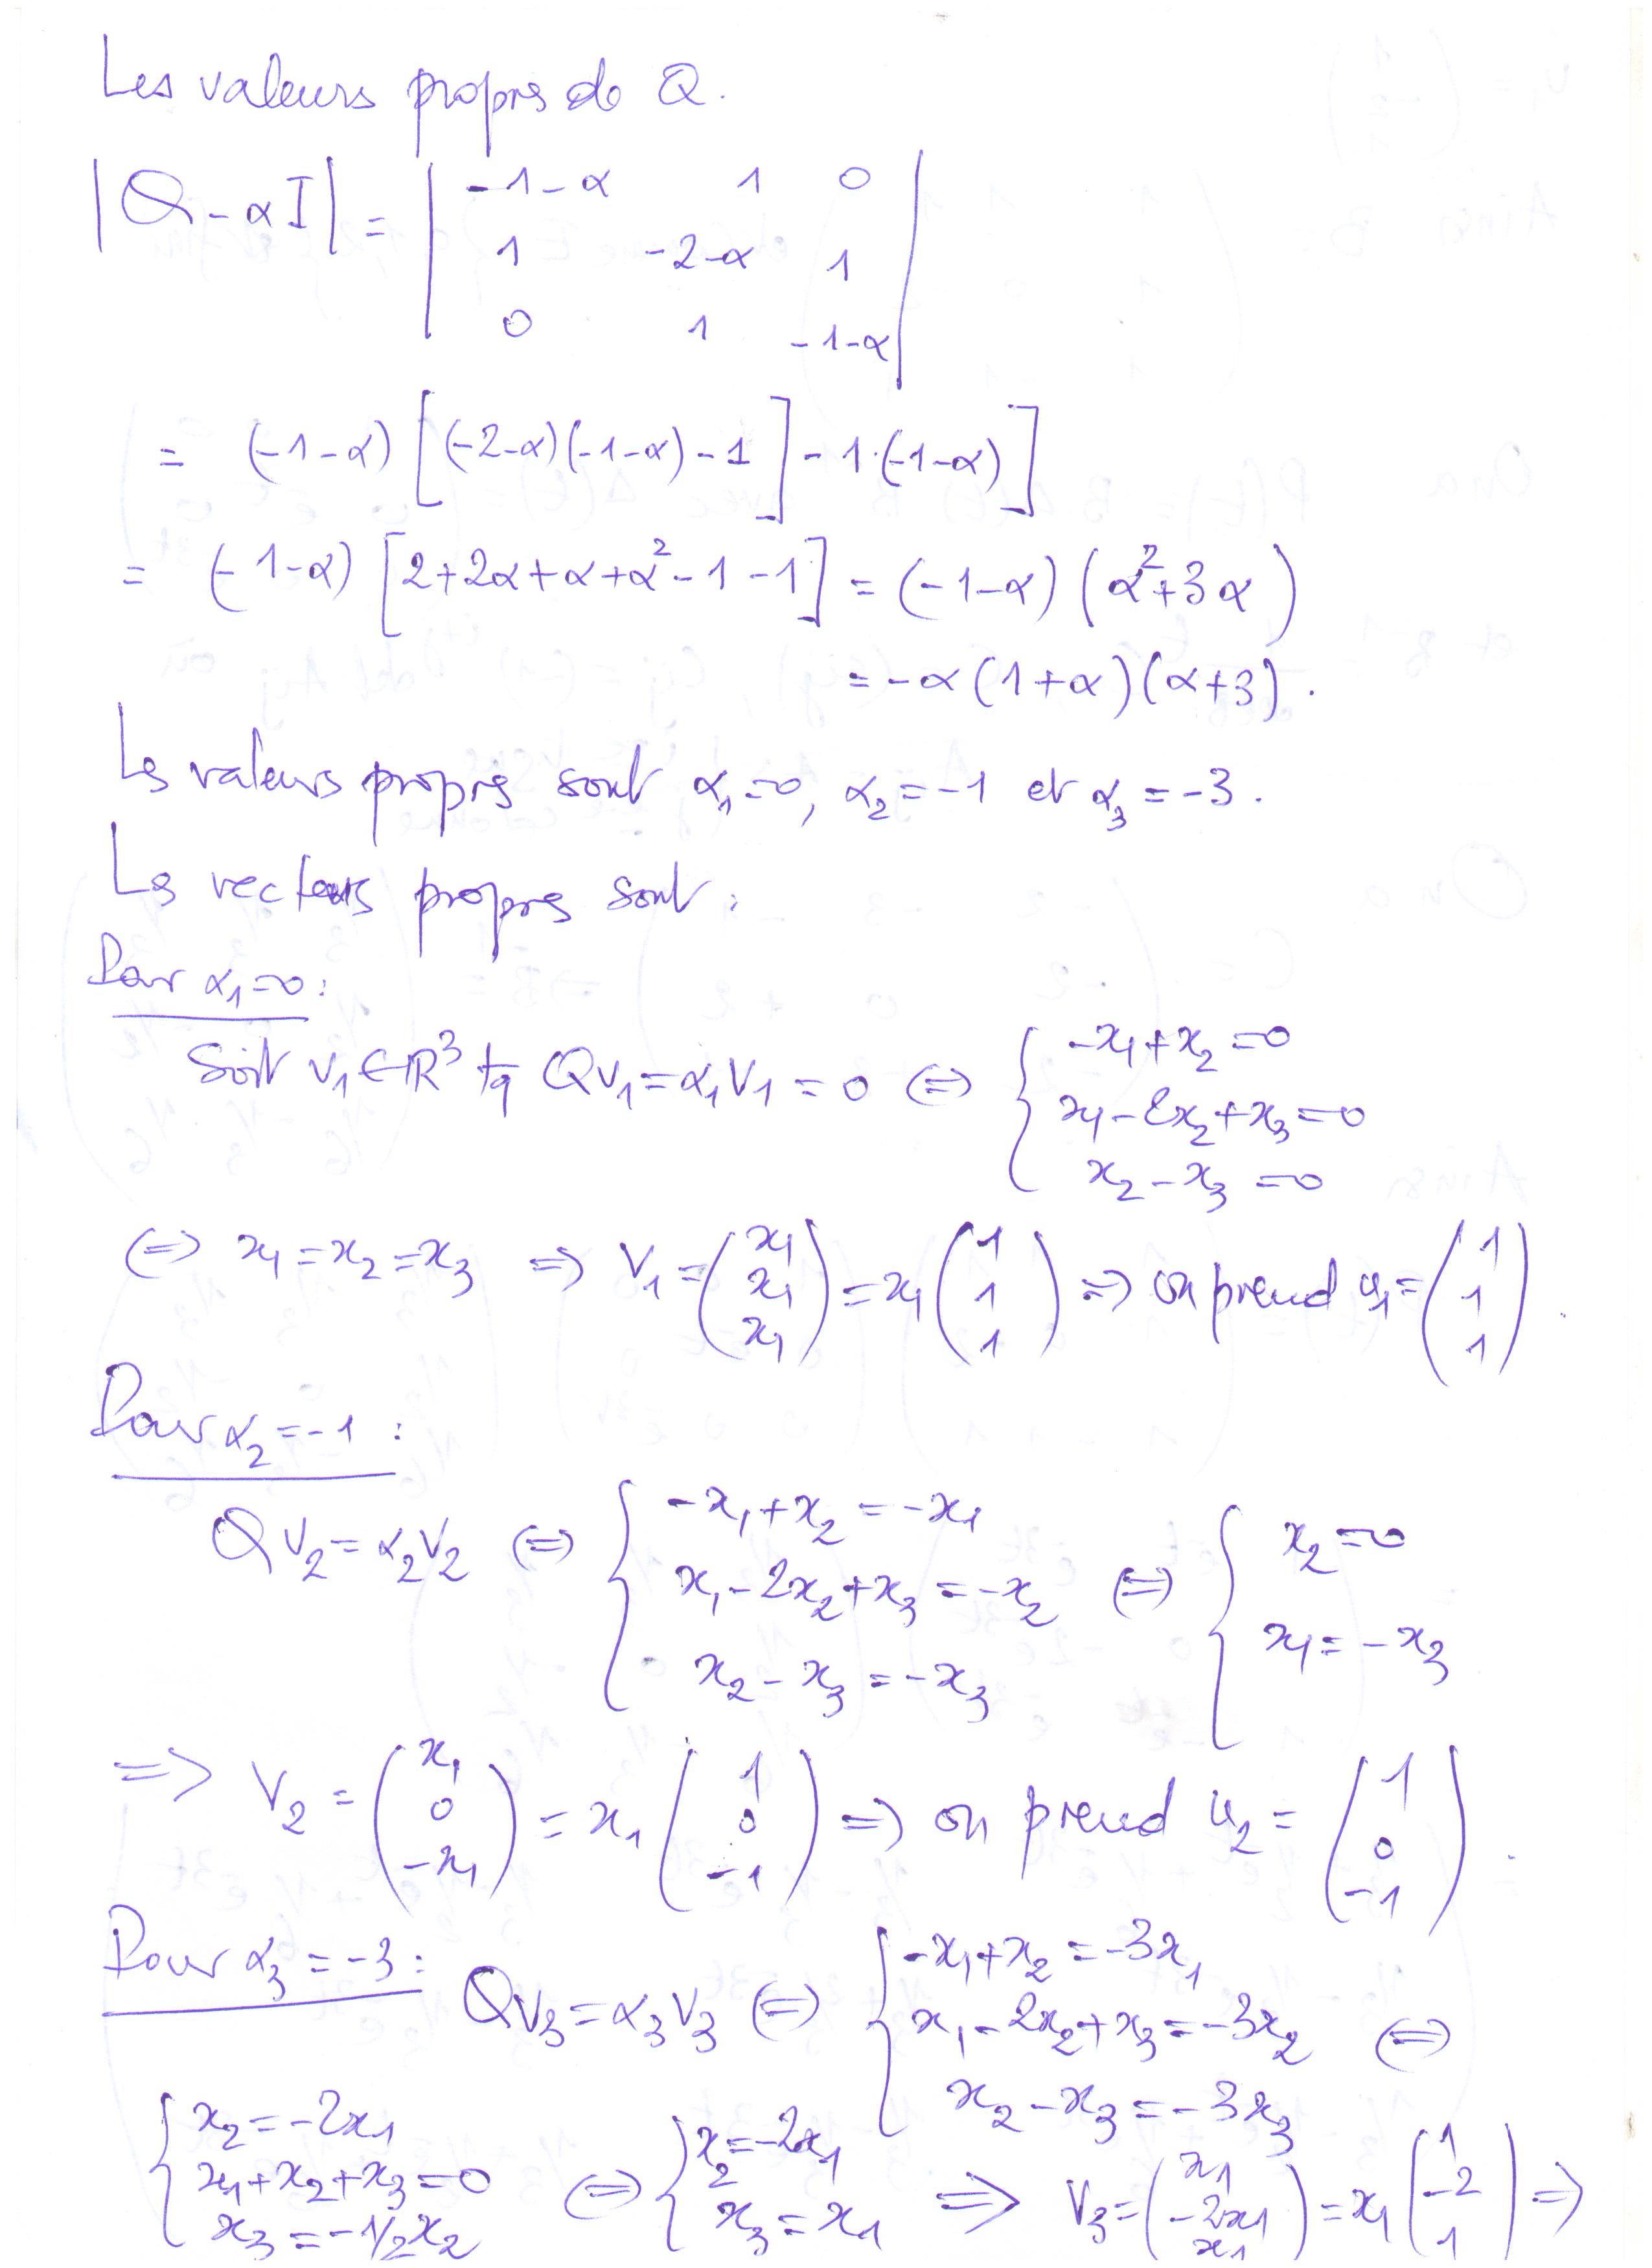 Les valeurs propres de Q.
|Q - αI| = | -1-α 1 0 |
| 1 -2-α 1 |
| 0 1 -1-α |
= (-1-α) [(-2-α)(-1-α) - 1] - 1·(-1-α)]
= (-1-α) [2+2α+α+α²-1-1] = (-1-α) (α²+3α)
= -α(1+α)(α+3).
Les valeurs propres sont α₁=0, α₂=-1 et α₃=-3.
Les vecteurs propres sont :
Pour α₁=0 :
Soit v₁∈ℝ³ tq Qv₁=α₁v₁=0 ⇔ { -x₁+x₂=0
x₁-2x₂+x₃=0
x₂-x₃=0
⇔ x₁=x₂=x₃ ⇒ V₁=(x₁ x₁ x₁)=x₁(1 1 1) ⇒ on prend u₁=(1 1 1).
Pour α₂=-1 :
QV₂=α₂V₂ ⇔ { -x₁+x₂=-x₁
x₁-2x₂+x₃=-x₂
x₂-x₃=-x₃
⇔ { x₂=0
x₁=-x₃
⇒ V₂=(x₁ 0 -x₁)=x₁(1 0 -1) ⇒ on prend u₂=(1 0 -1).
Pour α₃=-3 : QV₃=α₃V₃ ⇔ { -x₁+x₂=-3x₁
x₁-2x₂+x₃=-3x₂ ⇔
x₂-x₃=-3x₃
{ x₂=-2x₁
x₁+x₂+x₃=0
x₃=-1/2x₂
⇔ { x₂=-2x₁
x₃=x₁
⇒ V₃=(x₁ -2x₁ x₁)=x₁(1 -2 1) ⇒